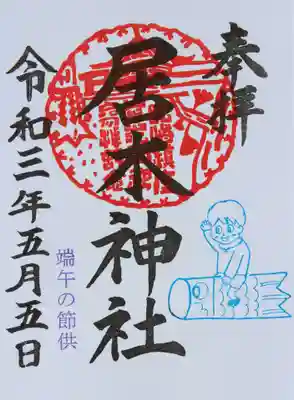 奉拝
居木神社
令和三年五月五日
端午の節供